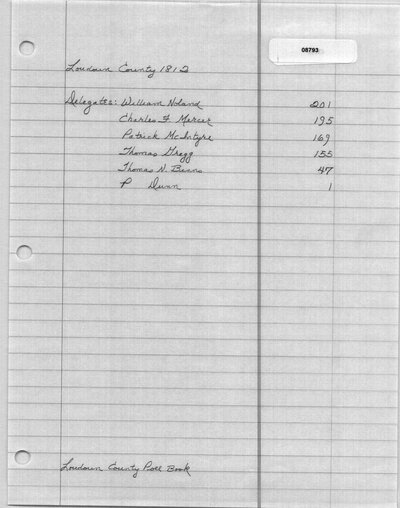 08793
Loudoun County 1812
Delegates: William Noland 201
Charles F Mercer 195
Patrick McIntyre 169
Thomas Gregg 155
Thomas N. Beans 47
P Dunn 1
Loudoun County Poll Book